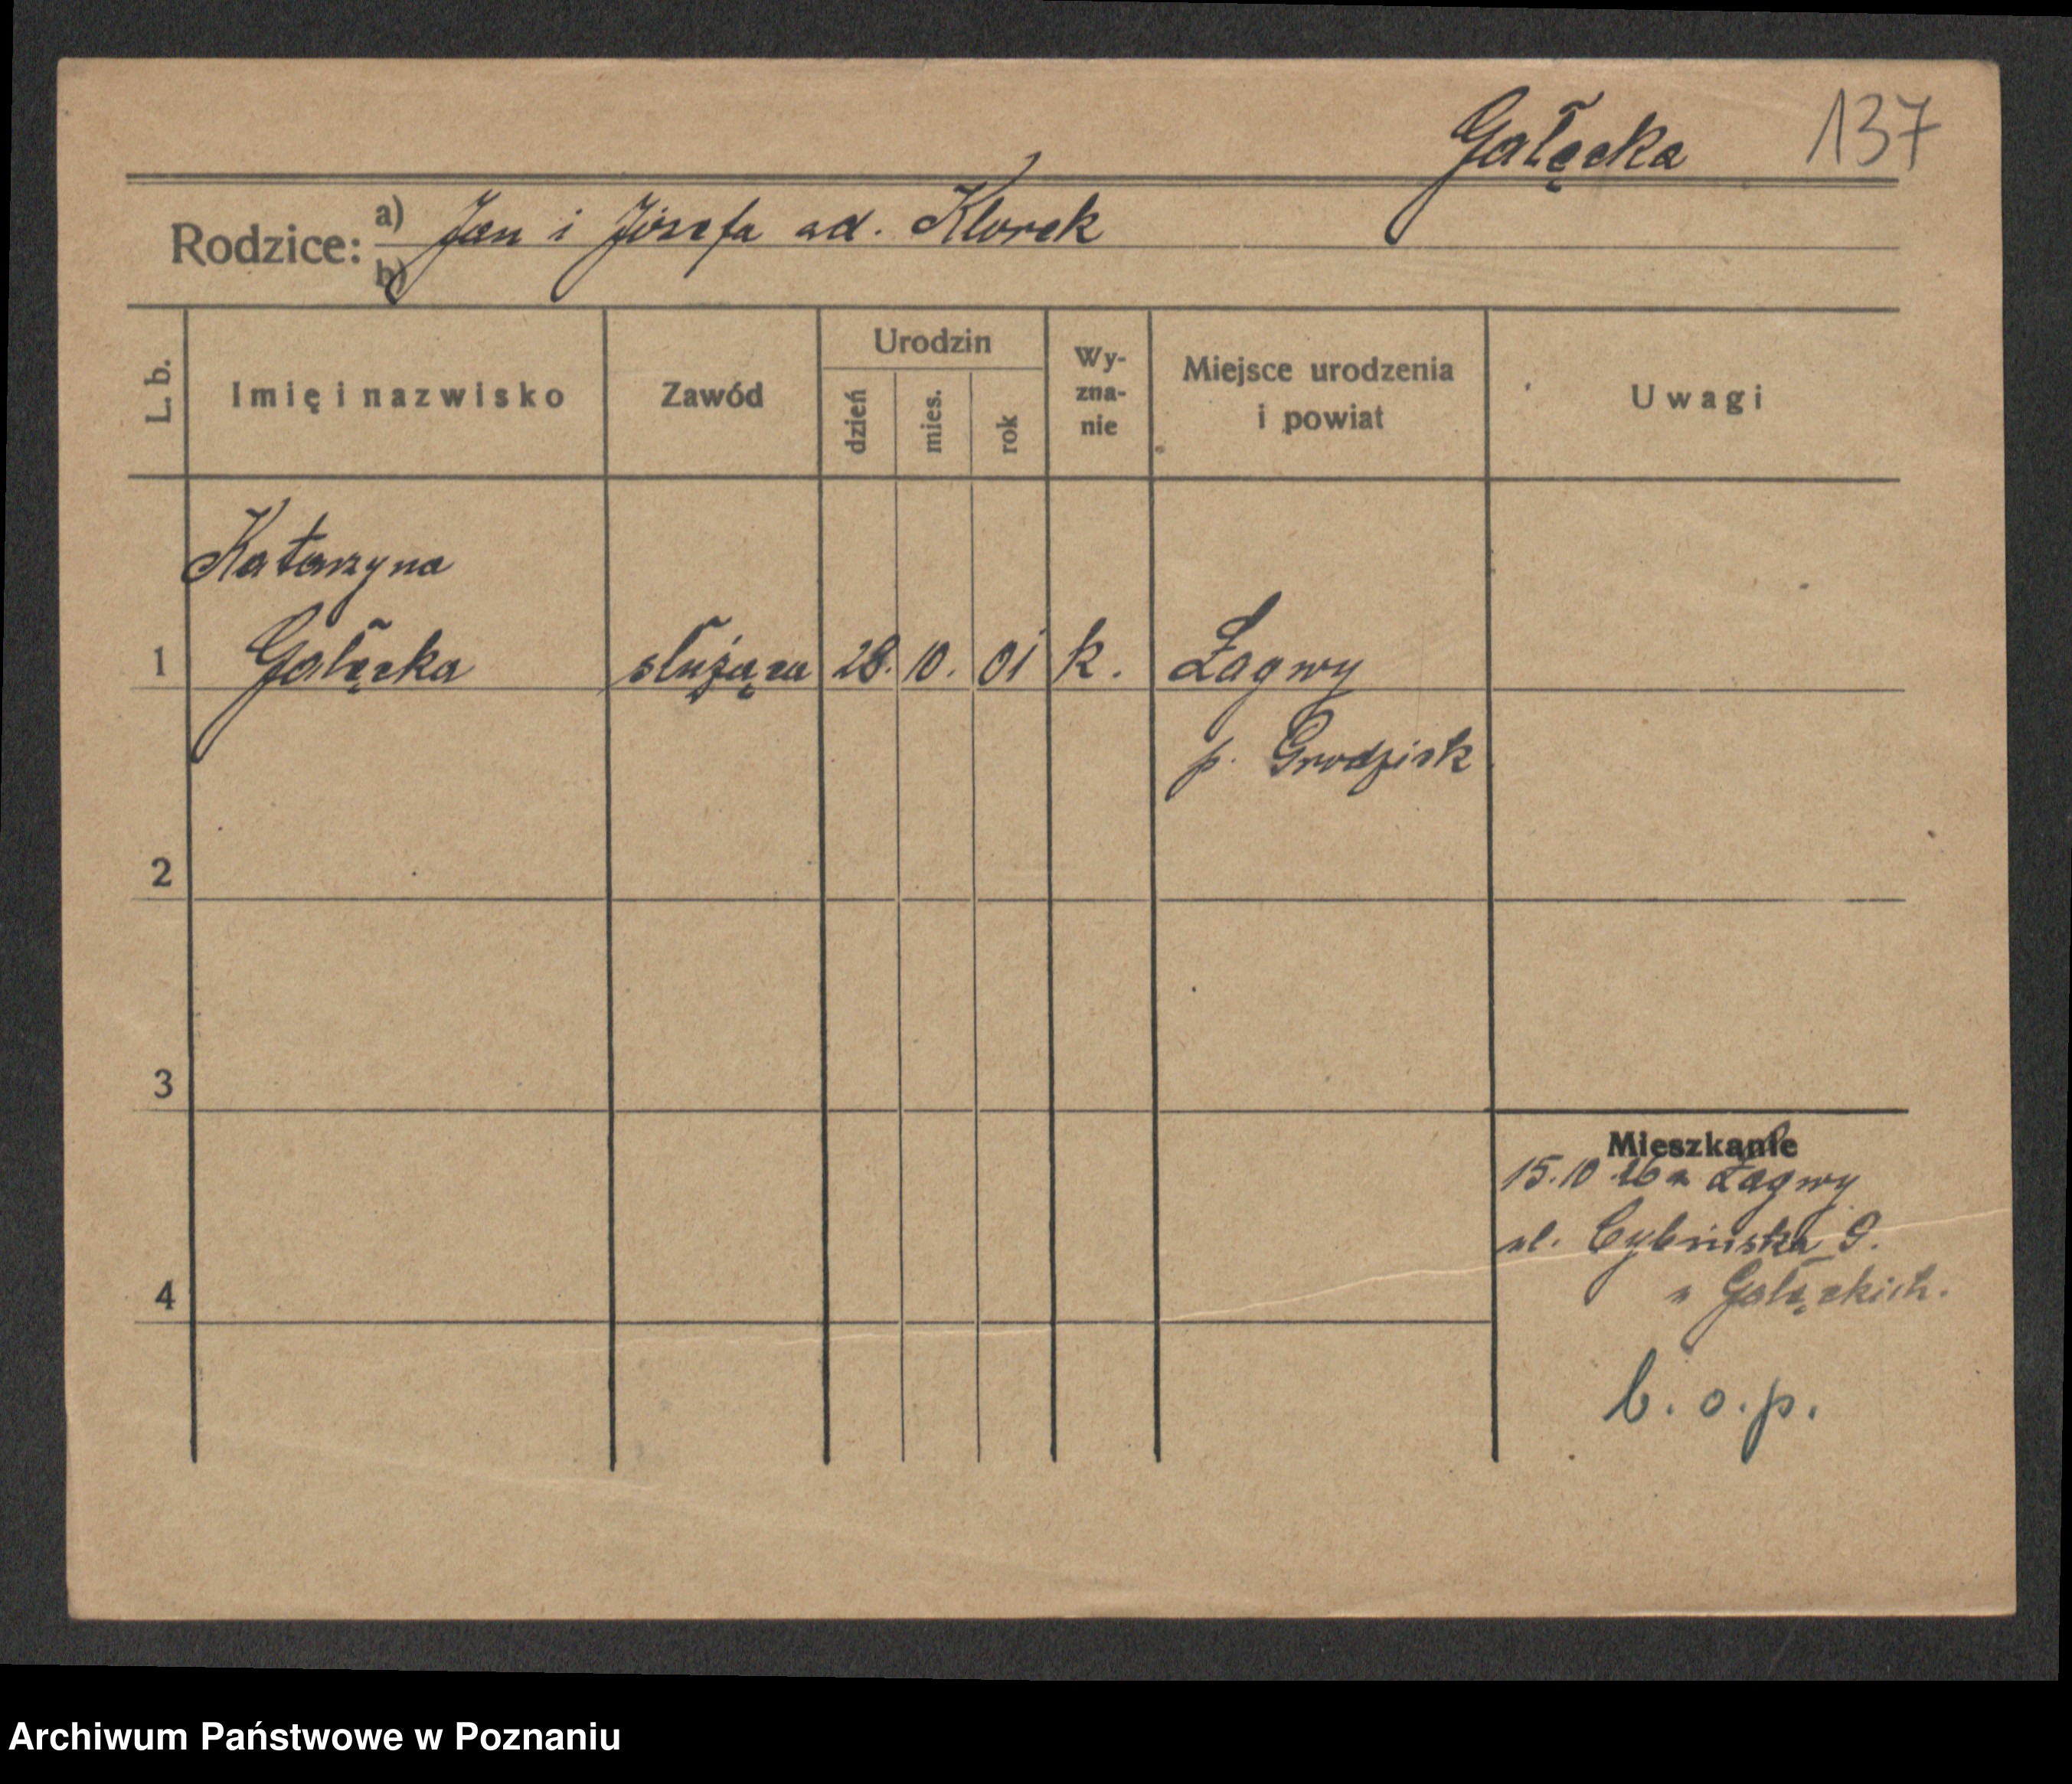 Gałęcka 137
Rodzice: a) Jan i Józefa ad. Klorek
b)
L. b. Imię i nazwisko Zawód Urodzin dzień mies. rok Wy-zna-nie Miejsce urodzenia i powiat Uwagi
Katarzyna
1 Gałęcka służąca 28. 10. 01 k. Łagwy
p. Grodzisk
2
3
Mieszkanie
15.10.26 z Łagwy
ul. Cybińska 9.
u Gałęckich.
4
b. o. p.
Archiwum Państwowe w Poznaniu